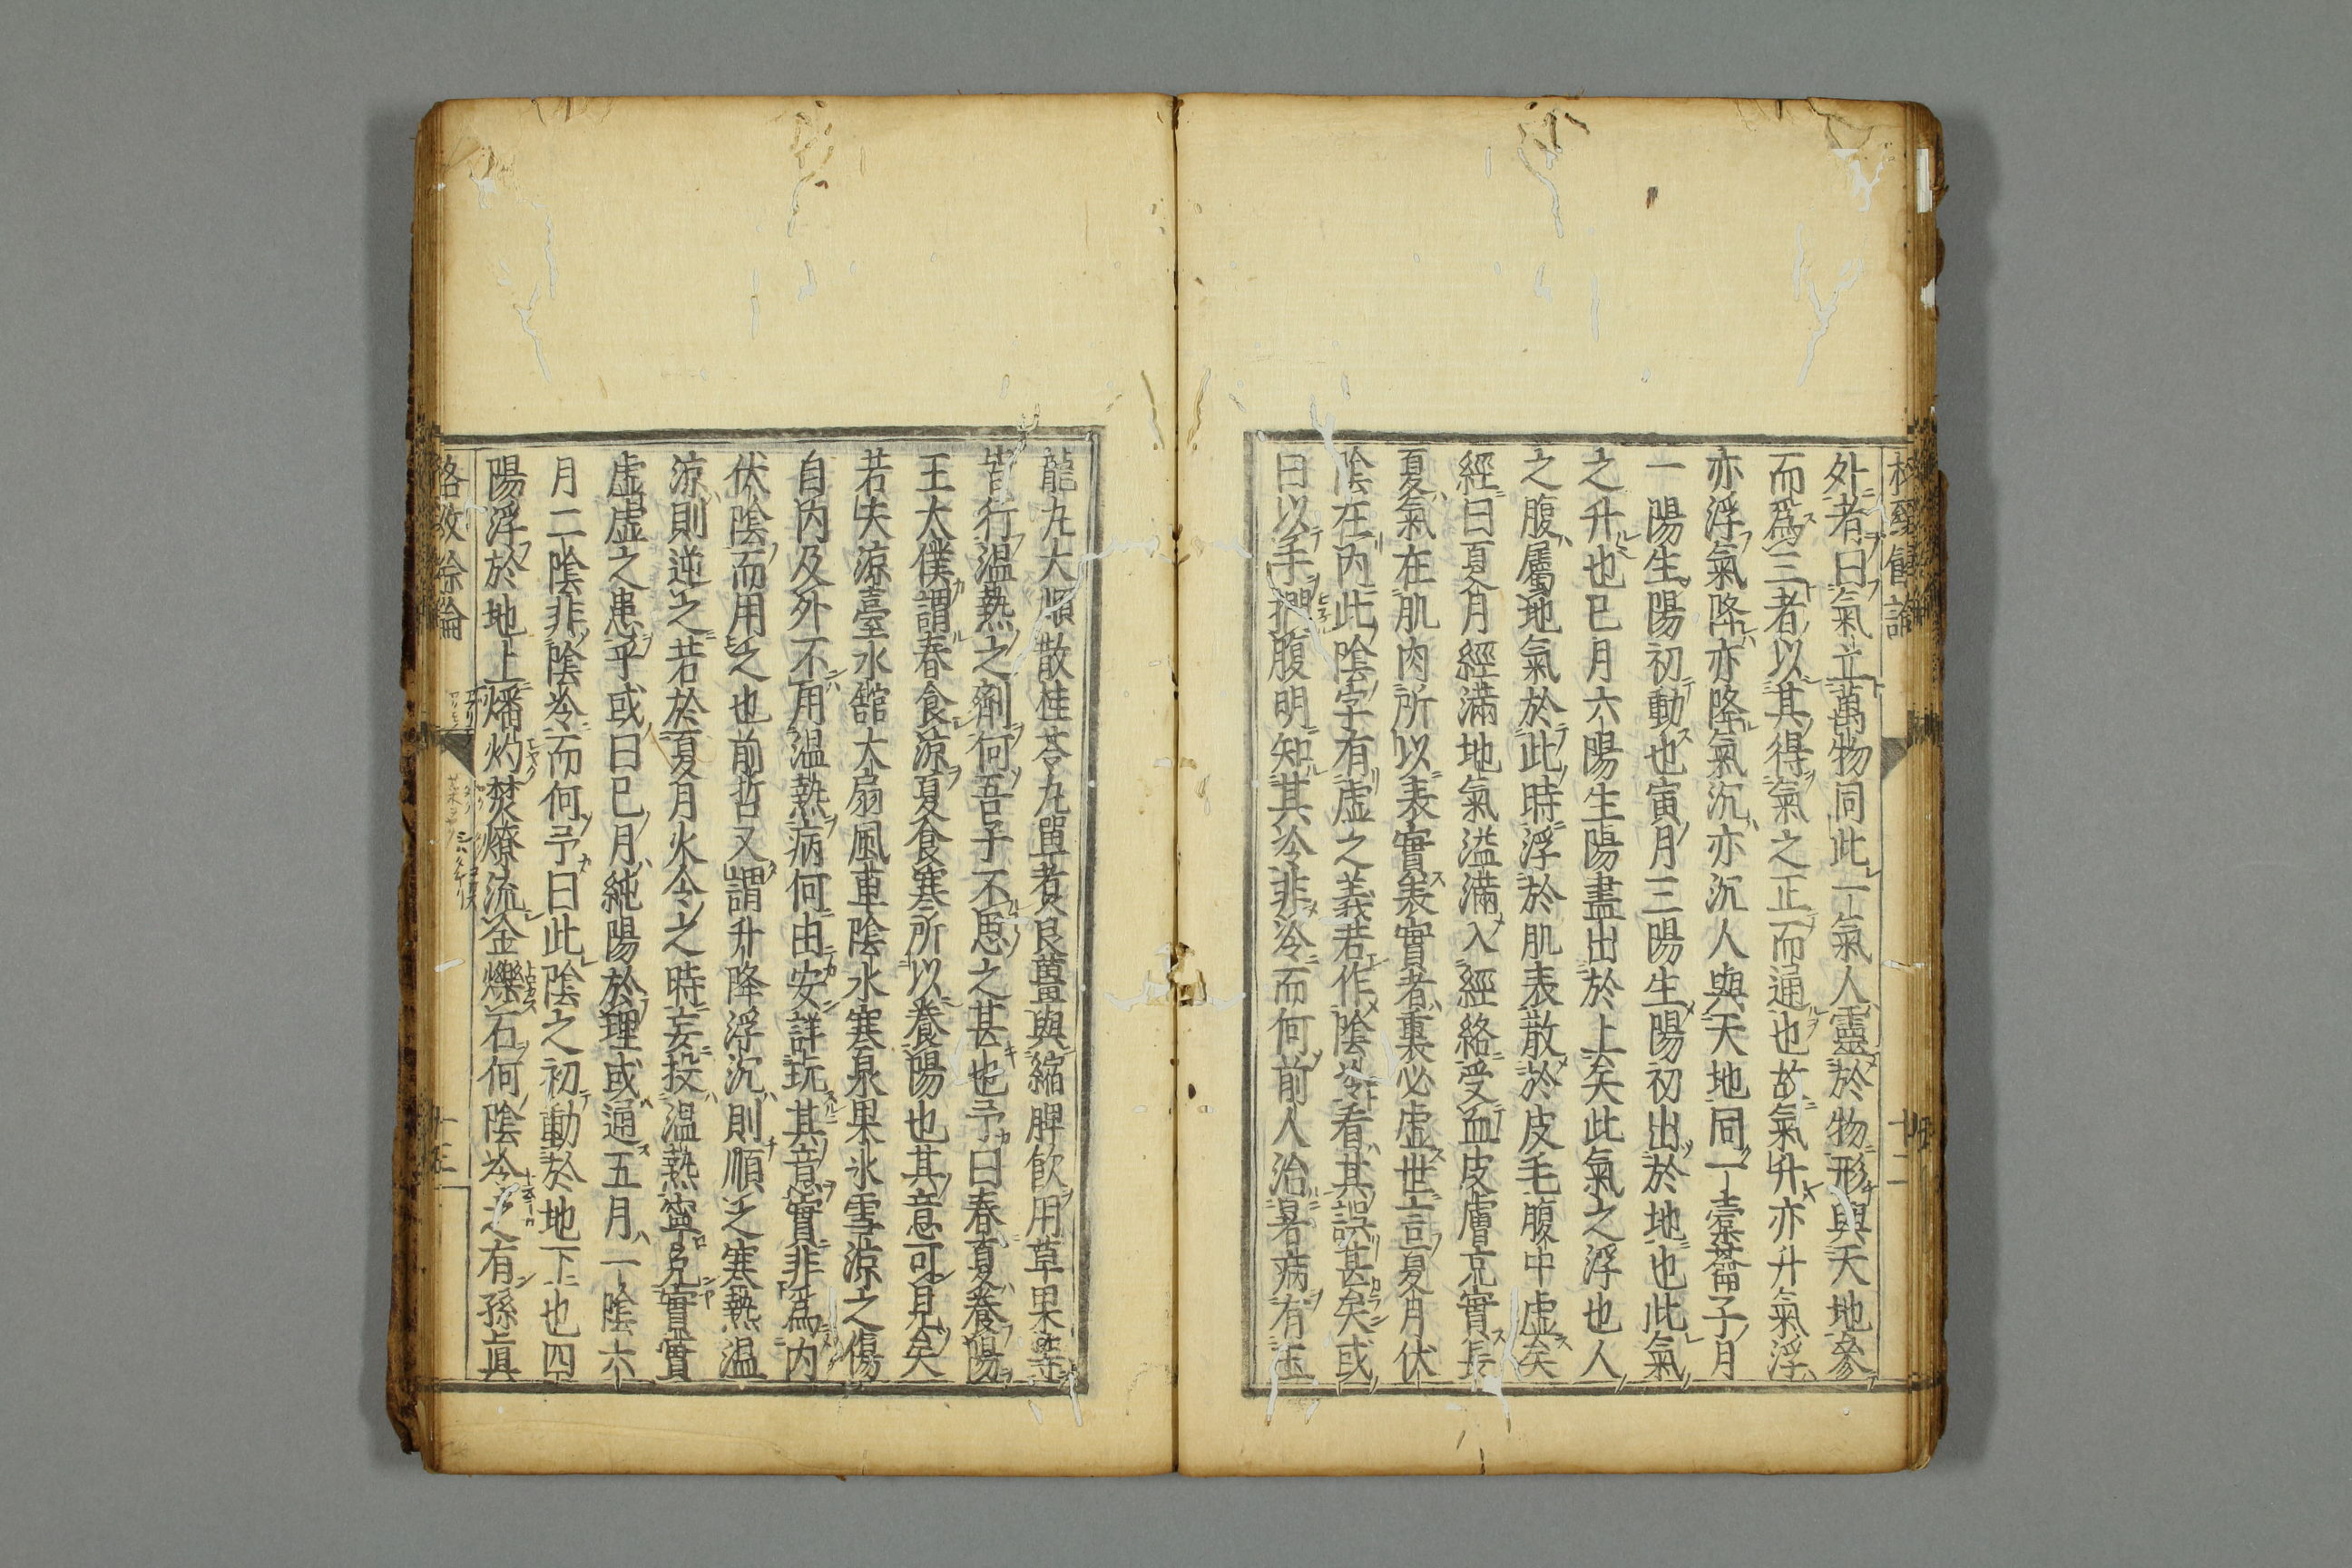 外者曰氣立萬物同此一氣人靈於物形與天地參
而爲三者以其得氣之正而通也故氣升亦升氣浮
亦浮氣降亦降氣沉亦沉人與天地同一橐籥子月
一陽生陽初動也寅月三陽生陽初出於地也此氣
之升也巳月六陽生陽盡出於上矣此氣之浮也人
之腹屬地氣於此時浮於肌表散於皮毛腹中虛矣
經曰夏月經滿地氣溢滿入經絡受血皮膚充實長
夏氣在肌肉所以表實表實者裏必虛世言夏月伏
陰在内此陰字有虛之義若作陰冷看其誤甚矣或
曰以手捫腹明知其冷非冷而何前人治暑病有玉
龍丸大順散桂苓丸單煮良薑與縮脾飲用草果等
皆行温熱之劑何吾子不思之甚也予曰春夏養陽
王太僕謂春食涼夏食寒所以養陽也其意可見矣
若夫涼臺水舘大扇風車陰水寒泉果氷雪涼之傷
自内及外不用温熱病何由安詳玩其意實非爲内
伏陰而用之也前哲又謂升降浮沉則順之寒熱温
涼則逆之若於夏月火令之時妄投温熱寧免實實
虛虛之患乎或曰巳月純陽於理或通五月一陰六
月二陰非陰冷而何予曰此陰之初動於地下也四
陽浮於地上燔灼焚燎流金爍石何陰冷之有孫眞
格致餘論
十三